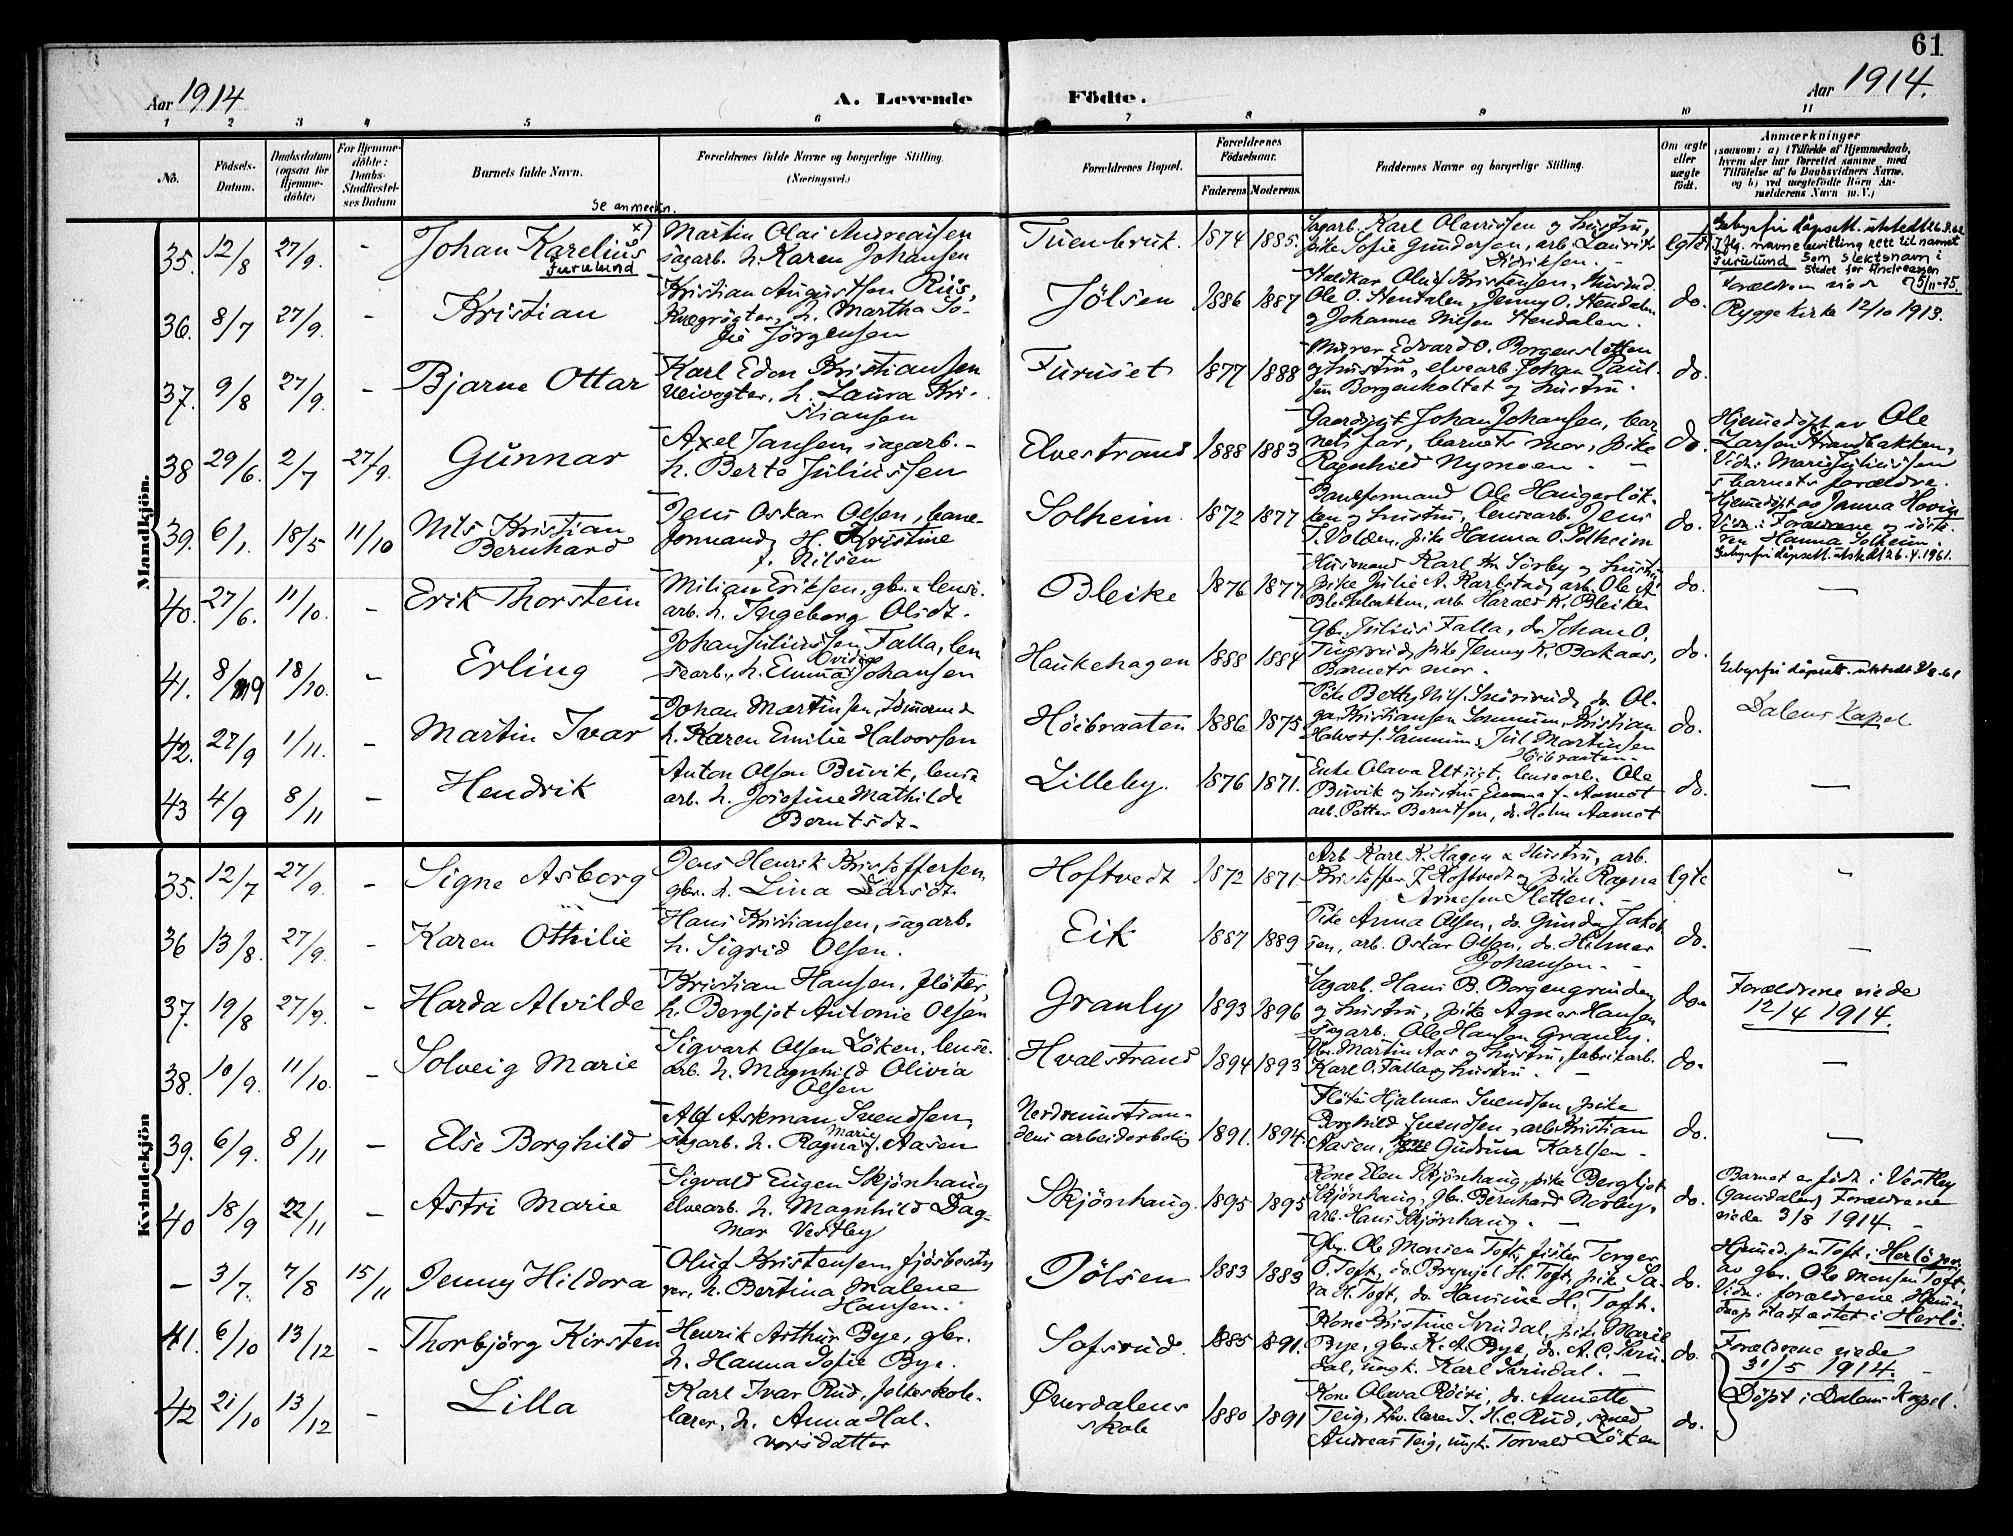 61
Aar 1914
A. Levende
Födte.
Aar 1914.
1 2 3 4 5 6 7 8 9 10 11
No.
Födsels-
Datum.
Daabsdatum
(ogsaa for
Hjemme-
döbte)
For Hjemme-
döbte:
Daabs-
Stadfæstel-
ses Datum
Barnets fulde Navn.
Forældrenes fulde Navne og borgerlige Stilling.
(Næringsvei.)
Forældrenes Bopæl.
Forældrenes
Födselsaar.
Faderens
Moderens
Faddernes Navne og borgerlige Stilling.
Om ægte
eller
uægte
födt.
Anmærkninger
(saasom: a) i Tilfælde af Hjemmedaab,
hvem der har forrettet samme, med
Tilföielse af to Daabsvidners Navne,
og b) ved uægtefödte Börn An-
melderens Navn m.V.)
Mandkjön.
se anmerkn.
35. 12/8 27/9. - Johan Karelius x)
Furulund
Martin Olai Andreassen
sagarb. h. Karen Johansen
Tuenbruk. 1874 1885.
Sagarb. Karl Olavessen og hustru,
pike Sofie Gundersen, arb. Laurits
Didriksen. -
Gebyrfri dåpsatt. utstedt
Iflg. navnebevilling rett til navnet
Furulund som slektsnavn i
stedet for Andreassen
25/11-75.
36. 8/7 27/9. - Kristian
Kristian Augustsen Riis,
Kvægrögter, h. Martha So-
fie Jörgensen
Jölsen 1886 1887
Ole O. Stendalen, Jenny O. Stendalen
og Johanne Nilsen Stendalen.
do.
Rygge Kirke 12/10 1913.
37. 9/8 27/9. - Bjarne Ottar
Karl Edon Kristiansen
Veivogter, h. Laura Kri-
stiansen
Furuset 1877 1888
Murer Edvard O. Borgensletten
og hustru, elvearb. Johan Paul-
sen Borgenholtet og hustru.
do.
38 29/6. 2/7 27/9. Gunnar
Axel Jansen, sagarb. -
h. Berte Juliussen
Elvestrand 1888 1883
Gaardsgt. Johan Johansen, bar-
nets far, barnets mor, pike
Ragnhild Nymoen. -
do.
Hjemmedöpt av Ole
Larsen Strandbakken,
Vidn: Marie Juliussen
& barnets forældre.
39. 6/1. 18/5 11/10 Nils Kristian
Bernhard
Jens Oskar Olsen, bane-
formand, H. Kristine
f. Nilsen
Solheim. 1872 1877
Baneformand Ole Haugerlök-
ken og hustru, lensearb. Jens
T. Volden, pike Hanna O. Solheim
do.
Hjemmedöpt av Janna Hovin
Vidn: Forældrene og söste-
ren Hanna Solheim.
Gebyrfri dåpsatt. utstedt 26.4.1961.
40. 27/6. 11/10. - Erik Thorstein
Milian Eriksen, gbr. & lense-
arb. h. Ingeborg Olsdt.
Bleike 1876 1877
Husmand Karl Kr. Sörby og hustru
pike Julie A. Karlstad, arb. Ole A.
Bleikebakken, arb. Harald K. Bleiken
do.
-
41. 8/9 18/10. - Erling
Johan Juliussen Falla, len
searb., h. Emma Ovidia Johansen
Haukehagen 1888 1884
Gbr. Julius Falla, do. Johan O.
Tingsrud, pike Jenny K. Bakaas,
Barnets mor.
do.
Gebyrfri dåpsatt. utstedt
42. 27/9 1/11. - Martin Ivar
Johan Martinsen, tömmerm.
h. Karen Emilie Halvorsen
Höibraaten 1886 1875
Pike Betty Nils. Snösrud, do. Ol-
ga Kristiansen Sammum, Kristian
Halvors. Sammum, Jul. Martinsen
Höibraaten -
do.
Dalens Kapel
43 4/9 8/11 - Hendrik
Anton Olsen Buvik, lense
arb. h. Josefine Mathilde
Berntsdt.
Lilleby. 1876 1871.
Enke Olava Utsigt, lensearb. Ole
Buvik og hustru Emma f. Aamot
arb. Petter Berntsen, do. Holm Aamot
do.
-
Kvindekjön
35. 12/7 27/9. - Signe Asborg
Jens Henrik Kristoffersen,
gbr. h. Lina Larsdt.
Hoftvedt 1872 1871
Arb. Karl K. Hagen & Hustru, arb.
Kristoffer J. Hoftvedt og pike Ragna
Arnesen Sletten. -
-
36 13/8. 27/9. - Karen Othilie
Hans Kristiansen, sagarb.
h. Sigrid Olsen.
Eik 1887 1889
Pike Anna Olsen, do. Gunda Jakob
sen, arb. Oskar Olsen, do. Hilmar
Johansen. -
do.
-
37. 19/8 27/9. - Harda Alvilde
Kristian Hansen, flöter,
h. Bergljot Antonie Olsen
Granly 1893 1896
Sagarb. Hans B. Borgengrinden
og hustru, pike Agnes Hansen
sagarb. Ole Hansen Granly.
do.
Forældrene viede
12/4 1914.
38. 10/9. 11/10. - Solveig Marie
Sigvart Olsen Löken, lense-
arb. h. Magnhild Olivia
Olsen
Hvalstrand 1894 1893
Gbr. Martin Aas og hustru, fabrikarb.
Karl O. Falla og hustru. -
do.
-
39. 6/9. 8/11 - Else Borghild
Alf Askman Svendsen,
sagarb. h. Ragna Marie f. Aasen
dens arbeiderbolig
1891. 1894.
Flöter Hjalmar Svendsen, pike
Borghild Svendsen, arb. Kristian
Aasen, Kone Gudrun Karlsen -
do.
-
40 18/9 22/11 - Astri Marie
Sigvald Eugen Skjönhaug
elvearb. h. Magnhild Dag-
mar Vestby
Skjönhaug. 1895 1895
Kone Elen Skjönhaug, pike Bergljot
Skjönhaug, gbr. Bernhard Norby,
arb. Hans Skjönhaug. -
do.
Barnet er födt i Vestby
Gansdalen, Forældrene
viede 3/8 1914. -
- 3/7. 7/8 15/11 Jenny Hildora
Oluf Kristensen, fjösbesty
rer, h. Bertina Malene
Hansen.
Jölsen 1883 1883
Gbr. Ole Monsen Toft, fisker Torger
O. Toft, do. Brynjel H. Toft, pike Sa-
ra H. Toft, do. Hansine H. Toft.
do.
Hjemmed. paa Toft i Herlö
av gbr. Ole Monsen Toft,
Vidn: forældrene Hjemme
daap stadfæstet i Herlö.
41. 6/10 13/12 - Thorbjörg Kirsten
Henrik Arthur Bye, gbr.
h. Hanna Sofie Bye.
Sofsrud. 1885 1891.
Kone Kristine Svindal, pike Marie
Bye, gbr. K. A. Bye, do. A. C. Svin-
dal, ungk. Karl Svindal. -
do.
Forældrene viede
31/5 1914. -
42 21/10 13/12 - Lilla
Karl Ivar Rud, folkeskole-
lærer, h. Anna Hal-
vorsdatter
Överdalens
skole
1880 1891
Kone Olava Röisi, do. Annette
Teig, fhv. lærer J. H. C. Rud, smed
Andreas Teig, ungk. Torvald Löken
do.
Döpt i Dalens Kapel.